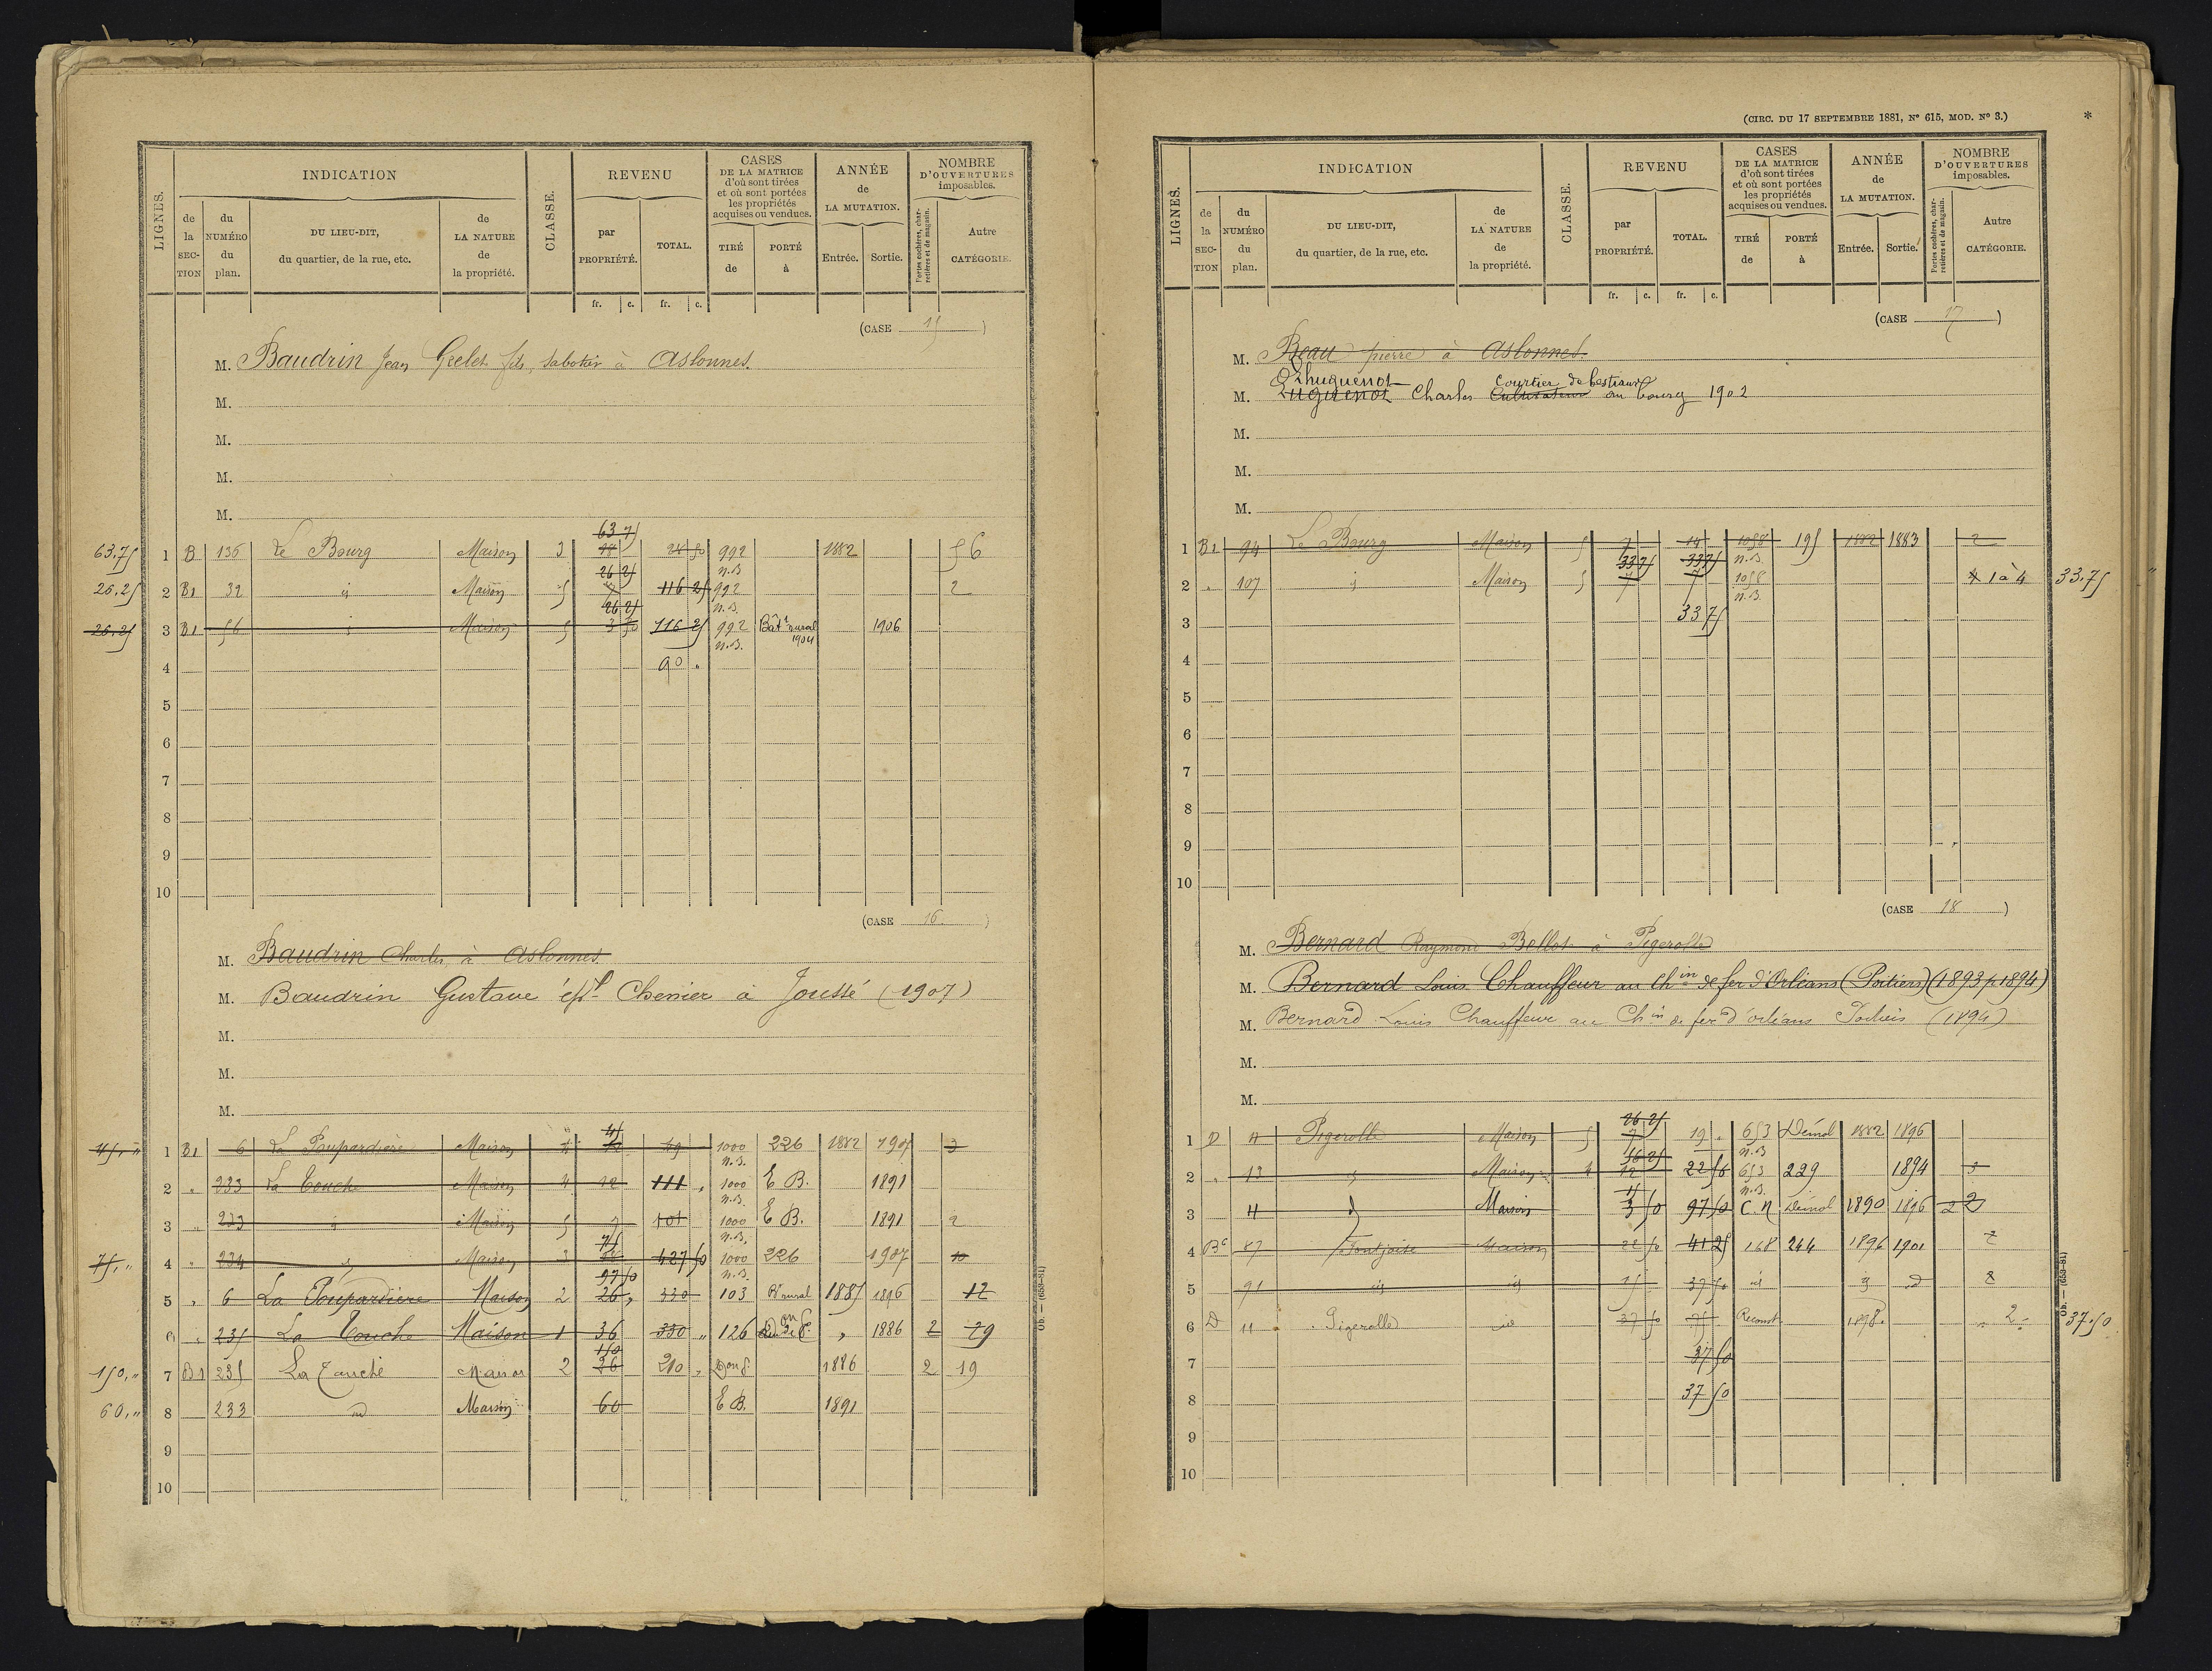 LIGNES.
INDICATION
de la SECTION
du NUMÉRO du plan.
DU LIEU-DIT, du quartier, de la rue, etc.
de LA NATURE de la propriété.
CLASSE.
REVENU
par PROPRIÉTÉ.
TOTAL.
fr. c. fr. c.
CASES DE LA MATRICE d'où sont tirées et où sont portées les propriétés acquises ou vendues.
TIRÉ de
PORTÉ à
ANNÉE de LA MUTATION.
Entrée. Sortie.
NOMBRE D'OUVERTURES imposables.
Portes cochères, charretières et de magasin.
Autre CATÉGORIE.
(CASE 15)
M. Baudrin Jean Grelet fils, sabotier à Aslonnes.
M.
M.
M.
M.
63 75
63,75 1 B 136 Le Bourg Maison 3 28 50 992 1882 5 6
26 25 n.B.
26,25 2 B1 32 id Maison 5 7 116 25 992 2
26 25 n.B.
26,25 3 B1 56 id Maison 5 3 50 116 25 992 Bât. rural 1904 1906
n.B.
4 90 "
5
6
7
8
9
10
(CASE 16.)
M. Baudrin Charles, à Aslonnes.
M. Baudrin Gustave ép. Chenier à Joussé (1907)
M.
M.
M.
45
45," 1 B1 6 La Poupardière Maison 4 12 49 1000 226 1882 1907 3
n.B.
2 " 233 La Touche Maison 4 12 111 " 1000 E B. 1891
n.B.
3 " 233 id Maison 5 7 101 1000 E B. 1891 2
75 n.B.
75," 4 " 234 id Maison 3 427 50 1000 226 1907 10
97 50 n.B.
5 " 6 La Poupardière Maison 2 26 " 330 103 Bt rural 1885 1896 12
6 " 235 La Touche Maison 1 36 330 " 126 " 1886 2 29
150
150," 7 B1 235 La Touche Maison 2 26 210 " 1886 2 19
60," 8 233 id Maison 60 E B. 1891
9
10
Ob. — (653–81)
(CIRC. DU 17 SEPTEMBRE 1881, N° 615, MOD. N° 3.)
*
LIGNES.
INDICATION
de la SECTION
du NUMÉRO du plan.
DU LIEU-DIT, du quartier, de la rue, etc.
de LA NATURE de la propriété.
CLASSE.
REVENU
par PROPRIÉTÉ.
TOTAL.
fr. c. fr. c.
CASES DE LA MATRICE d'où sont tirées et où sont portées les propriétés acquises ou vendues.
TIRÉ de
PORTÉ à
ANNÉE de LA MUTATION.
Entrée. Sortie.
NOMBRE D'OUVERTURES imposables.
Portes cochères, charretières et de magasin.
Autre CATÉGORIE.
(CASE 17)
M. Beau pierre à Aslonnes.
Lhuguenot Courtier de bestiaux
M. Luguenot Charles Cultivateur au bourg 1902
M.
M.
M.
1 B1 94 Le Bourg Maison 5 7 14 1058 195 1882 1883 2
33 75 33 75 n.B.
2 " 107 id Maison 5 7 7 1058 4 1 à 4 33,75 "
n.B.
3 33 75
4
5
6
7
8
9
10
(CASE 18)
M. Bernard Raymond Bellot à Pigerolles
M. Bernard Louis Chauffeur au Chin de fer d'Orléans (Poitiers) (1893 p 1894)
M. Bernard Louis Chauffeur au Chin de fer d'orléans Poitiers (1894)
M.
M.
26 25
1 D 11 Pigerolle Maison 5 7 19 " 653 Démol 1882 1896
56 25 n.B.
2 " 13 id Maison 4 12 22 56 653 229 1894 3
15 n.B.
3 11 d Maison 3 50 97 50 C.N Démol 1890 1896 2 2
4 87 Fontjoise Maison 22 50 41 25 168 244 1896 1901 2
5 91 id id 15 37 50 id id d 2
6 D 11 Pigerolles id 37 50 75 Reconst. 1898. 2 37,50
7 37 50
8 37 50
9
10
Ob. — (653–81)